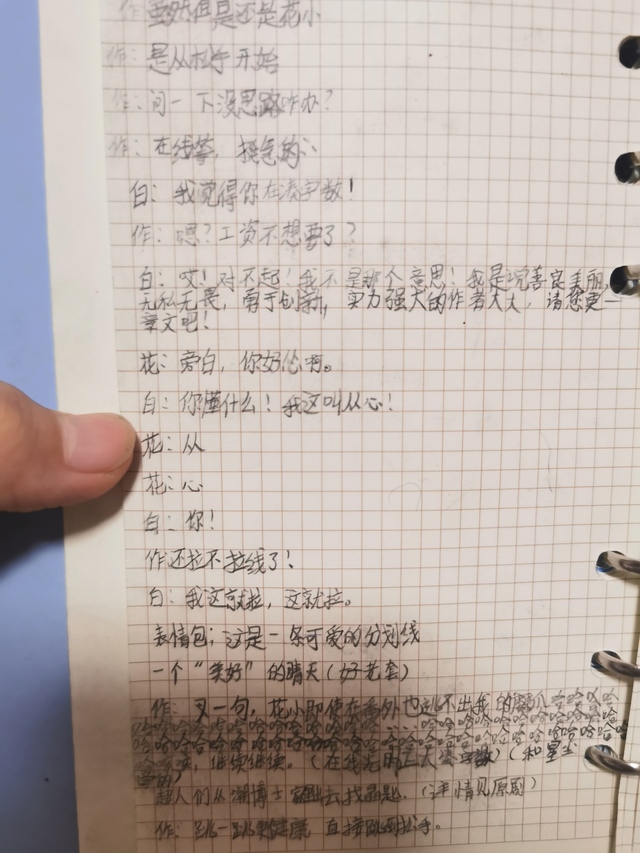 作：虽然但是还是花小
作：是从松手开始
作：问一下没思路咋办？
作：在线等，挺急的
白：我觉得你在凑字数！
作：嗯？工资不想要了？
白：哎！对不起！我不是那个意思！我是说善良美丽，
无私无畏，勇于创新，实力强大的作者大大，请您更一
章文吧！
花：旁白，你好怂啊。
白：你懂什么！我这叫从心！
花：从
花：心
白：你！
作还拉不拉线了！
白：我这就拉，这就拉。
表情包；这是一条可爱的分划线
一个“美好”的晴天（好老套）
作：又一句，花小即使在番外也逃不出我的
哈哈哈哈哈哈哈哈哈哈哈哈哈哈哈哈哈哈
哈哈哈哈哈哈哈哈哈哈哈哈哈哈哈哈哈哈哈
哈哈，继续继续。（在线
人们从潮博士 出去找 。（详情见原剧）
作：跳一跳更健康，直接跳到松手。